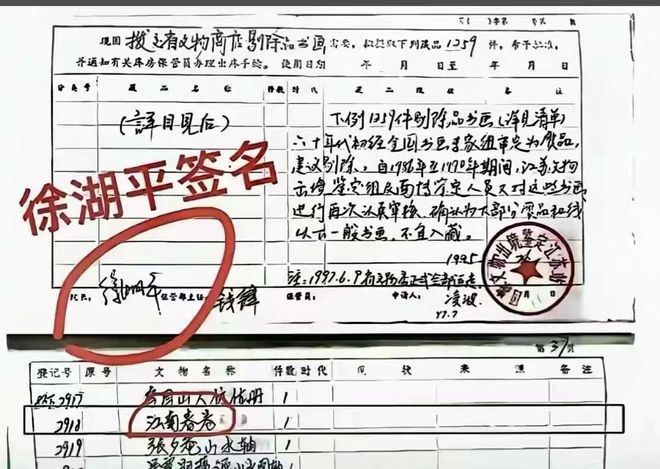 现因 拨交省文物商店剔除品书画 需要,拟提取下列藏品1259件,希予批准,
并通知有关库房保管员办理出库手续。使用日期 年 月 日至 年 月 日
分类号 藏品名称 件数 时代 藏品名称 备注
(详目见后)
下例1259件剔除品书画(详见清单)
六十年代初经全国书画专家组审定为伪品,
建议剔除。自1986年至1990年期间,江苏文物
出境鉴定组及面传鉴定人员又对这些书画
进行再次认真审核,确认为大部分赝品和线
以下一般书画,不宜入藏。
1995
注:1997.6.9
徐湖平签名
院长: 徐湖平 保管部主任: 钱锋 保管员: 申请人: 凌波
97.7
文物出境鉴定江苏
第37页
登记号 原号 文物名称 件数 时代 现状 来源 备注
2917 1
2918 江南春卷 1
2919 张夕庵山水轴 1